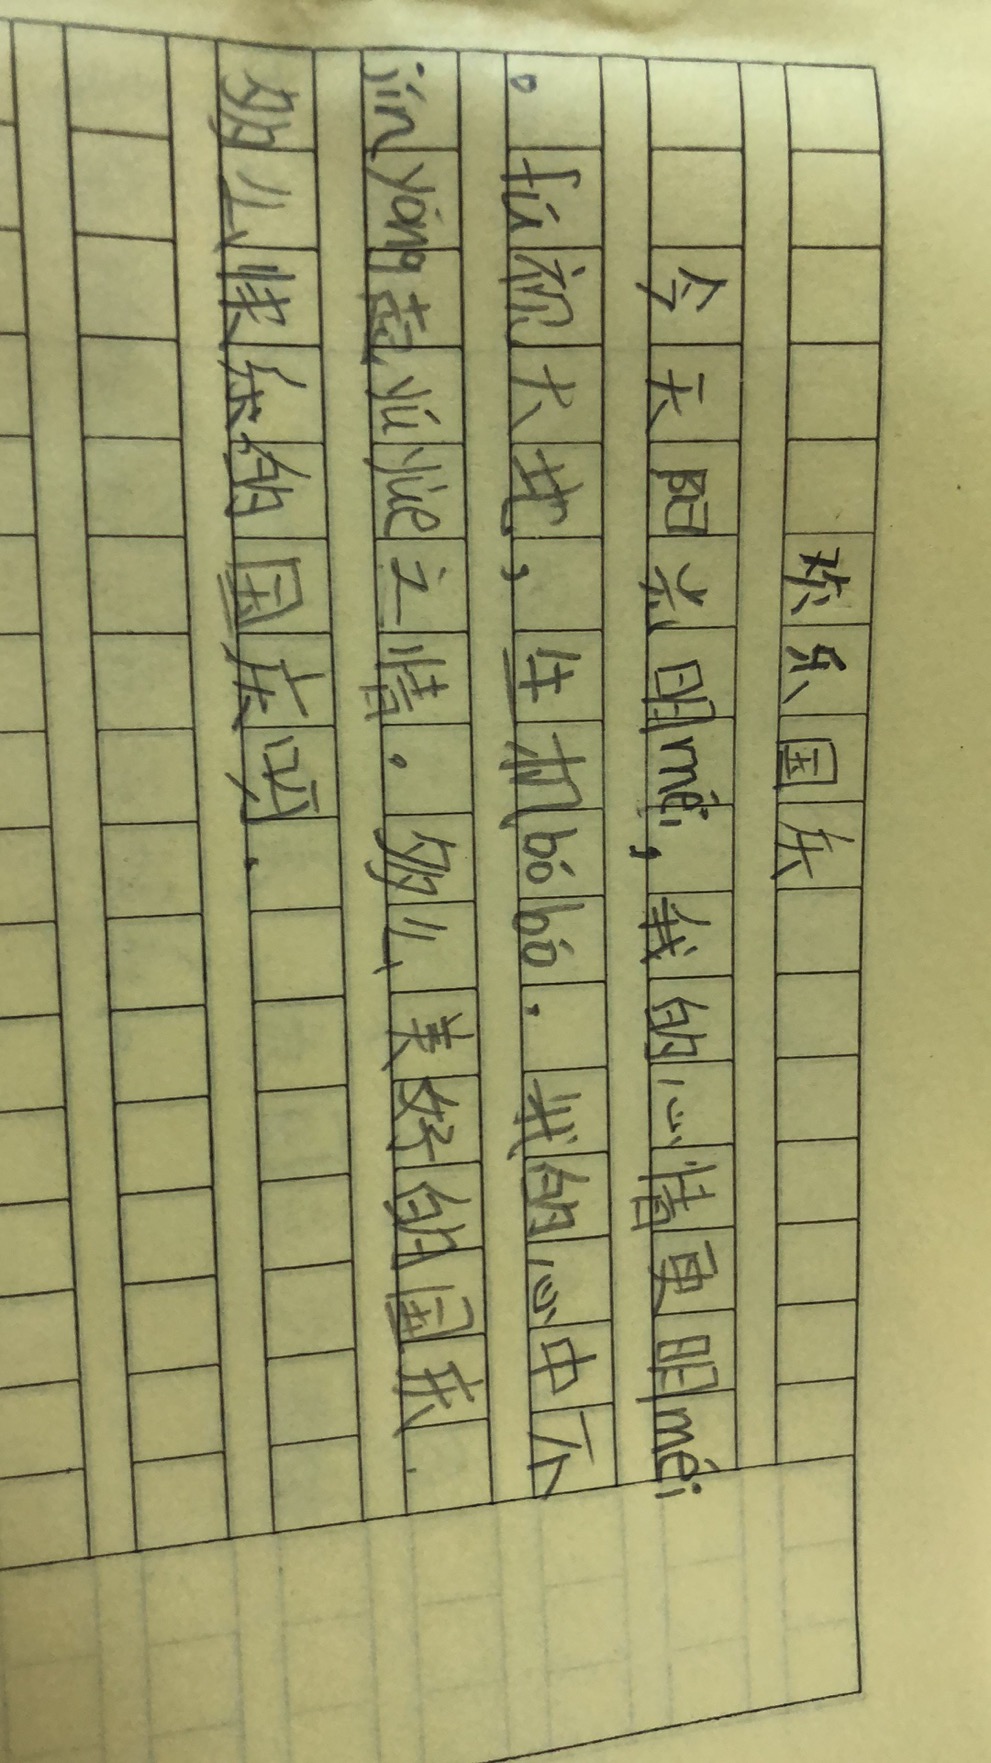 欢乐国庆
今天阳光明mèi，我的心情更明mèi
。fǔ视大地，生机bóbó．我的心中不
jīn yǒng起yú yuè之情。多么美好的国庆．
多么快乐的国庆呀．